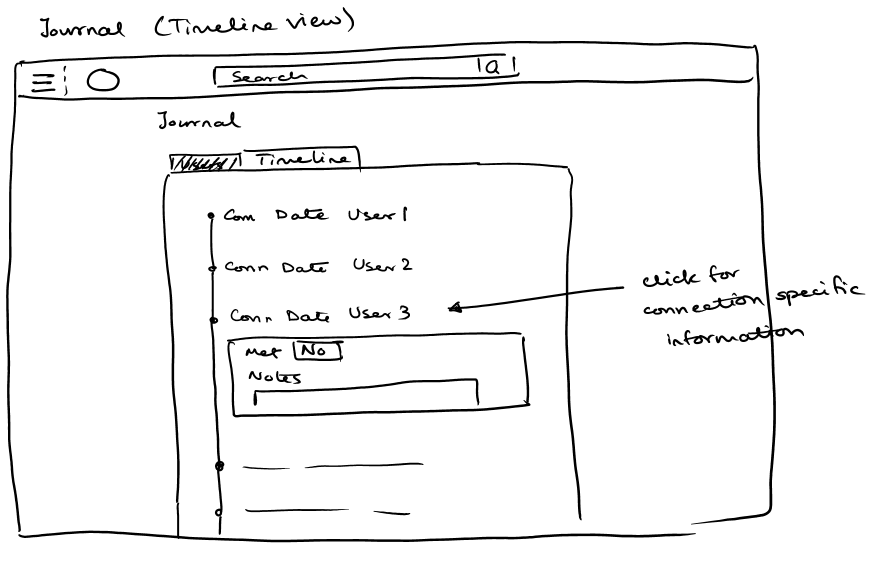 Journal (Timeline view)
Search
Journal
Timeline
Conn Date User 1
Conn Date User 2
Conn Date User 3
Met No
Notes
click for
connection specific
information